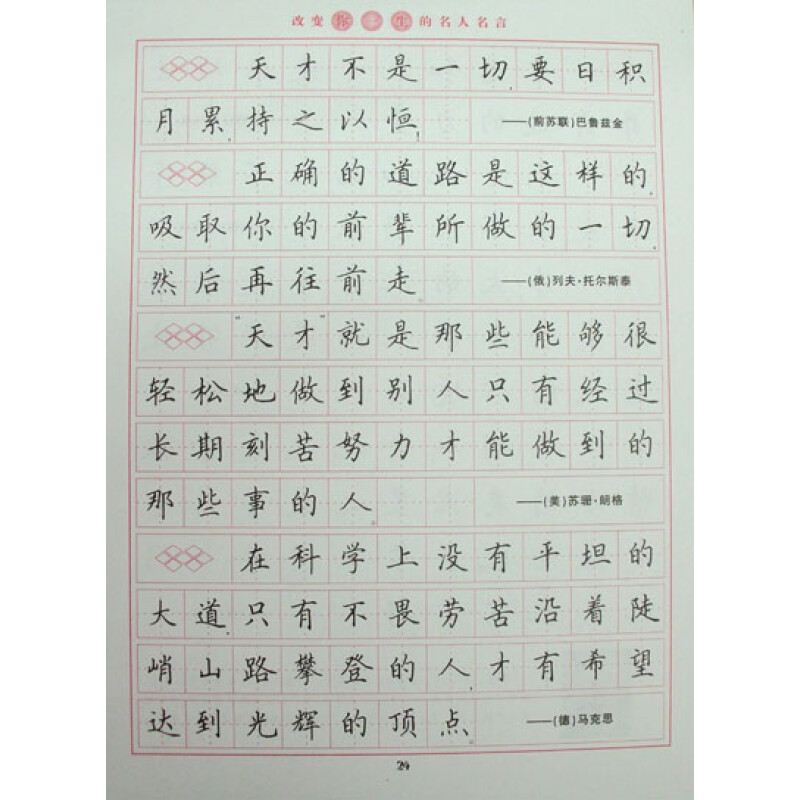 改变你一生的名人名言
天才不是一切,要日积
月累,持之以恒!——(前苏联)巴鲁兹金
正确的道路是这样的,
吸取你的前辈所做的一切,
然后再往前走。——(俄)列夫·托尔斯泰
“天才”就是那些能够很
轻松地做到别人只有经过
长期刻苦努力才能做到的
那些事的人。——(美)苏珊·朗格
在科学上没有平坦的
大道,只有不畏劳苦沿着陡
峭山路攀登的人,才有希望
达到光辉的顶点。——(德)马克思
24